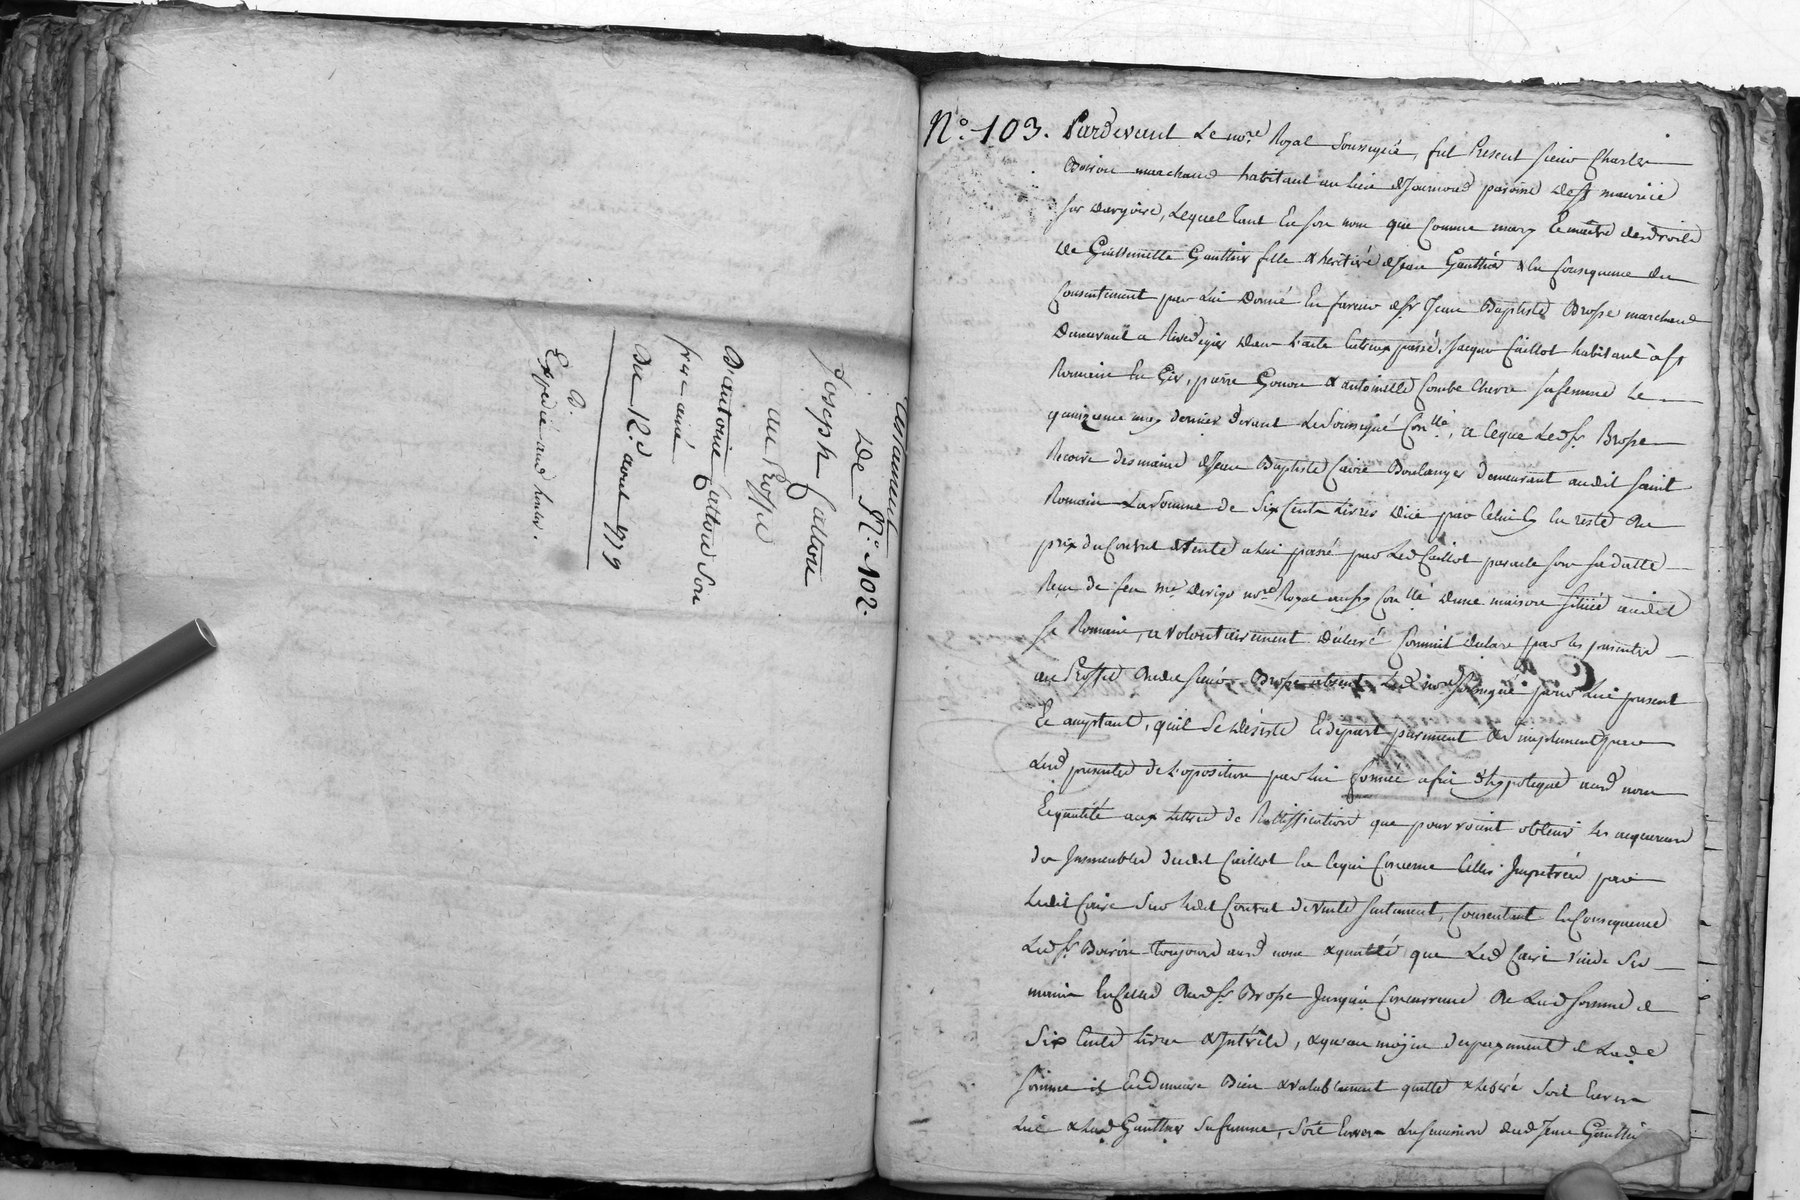 Testament
De N.° 102.
Joseph Gallon
au Proffit
D'antoine Gallon Son
frere ainé
Du 12.e aout 1779
D.
Expedié aud heritier.
N.° 103. Pardevant Le no.re Royal Soussigné, fut Present sieur Charles
Boiron marchand habitant au lieu de Journoud paroisse de st maurice
sur dargoire, Lequel tant En son nom que Comme mary Et maitre des droits
de Guillemette Gauthier fille & heritiere de Jean Gauthier & En Consequence du
Consentement par Lui donné En faveur de sr Jean Baptiste Brosse marchand
Demeurant a Rivedegier dans L'acte Entreux passé, Jacques Caillot habitant à st
Romain En Gier, pierre Gonon & antoinette Combe Chevre sa femme Le
quinzieme may dernier devant Le Soussigné Con.llé, a ceque Led. sr Brosse
Recoive des mains de Jean Baptiste Caire Boulanger demeurant audit saint
Romain La Somme de Six Cents Livres due par Celui cy En reste du
prix du Contrat de Vente a Lui passé par Led Caillot par acte sous sa datte
Reçu de feu Me no.re Royal aussy Con.llé d'une maison située audit
st Romain, a volontairement déclaré Comme il declare par les presentes
au Proffit dudit sieur Brosse absent Led. no.re soussigné pour Lui present
Et acceptant, qu'il Se desiste Et depart purement & simplement par
Lesd presentes de L'oposition par Lui formée afin d'hypoteque aud nom
Et qualité aux Lettres de Rattiffication que pourroient obtenir les acquereurs
des Immeubles dudit Caillot En cequi Concerne Celles Impetrées par
Ledit Caire Sur Ledit Contrat de vente seulement, Consentant En Consequence
Led. sr Boiron toujours aud nom & qualité que Led Caire vuide Ses
mains En Celles dud. sr Brosse Jusqu'a Concurrence de Lad somme de
Six Cents Livres & Intérêts, & qu'au moyen du payement de Lad.e
somme il En demeure Bien & valablement quitte & Liberé soit Envers
Lui & Lad. Gauthier Sa femme, soit Envers La succession dud Jean Gauthier